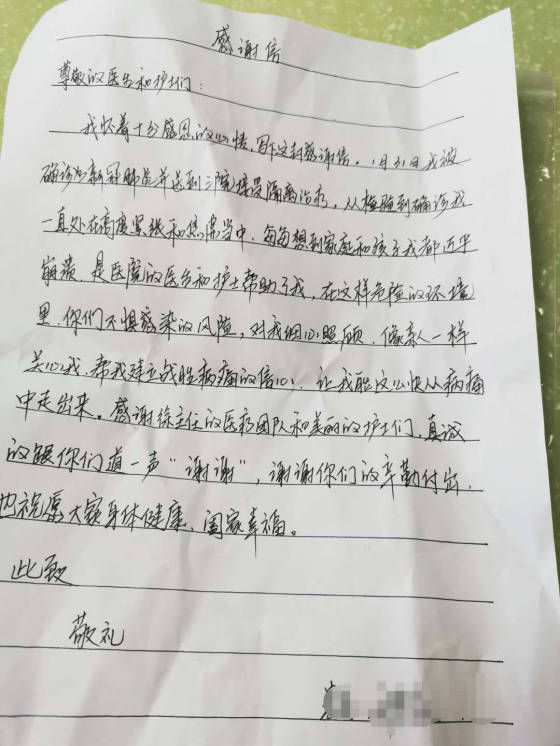 感谢信
尊敬的医生和护士们：
我怀着十分感恩的心情，写下这封感谢信。1月31日我被
确诊为新冠肺炎并送到三院接受隔离治疗，从检验到确诊我
一直处在高度紧张和焦虑当中，每每想到家庭和孩子我都近乎
崩溃，是医院的医务和护士帮助了我，在这样危险的环境
里，你们不惧感染的风险，对我细心照顾，像亲人一样
关心我，帮我建立战胜病痛的信心，让我能这么快从病痛
中走出来。感谢徐主任的医疗团队和美丽的护士们，真诚
的跟你们道一声“谢谢”，谢谢你们的辛勤付出，
也祝愿大家身体健康，阖家幸福。
此致
敬礼